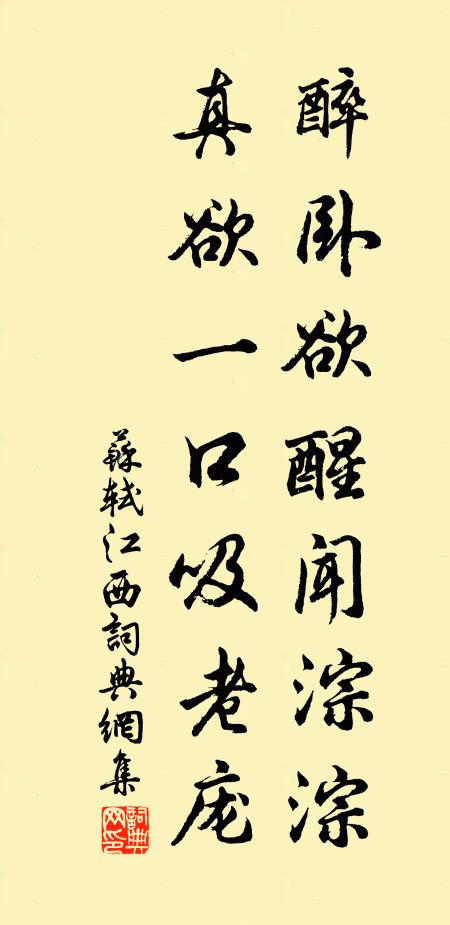 醉卧欲醒闻淙淙
真欲一口吸老庞
蘇軾江西詞典網集
詞典網印